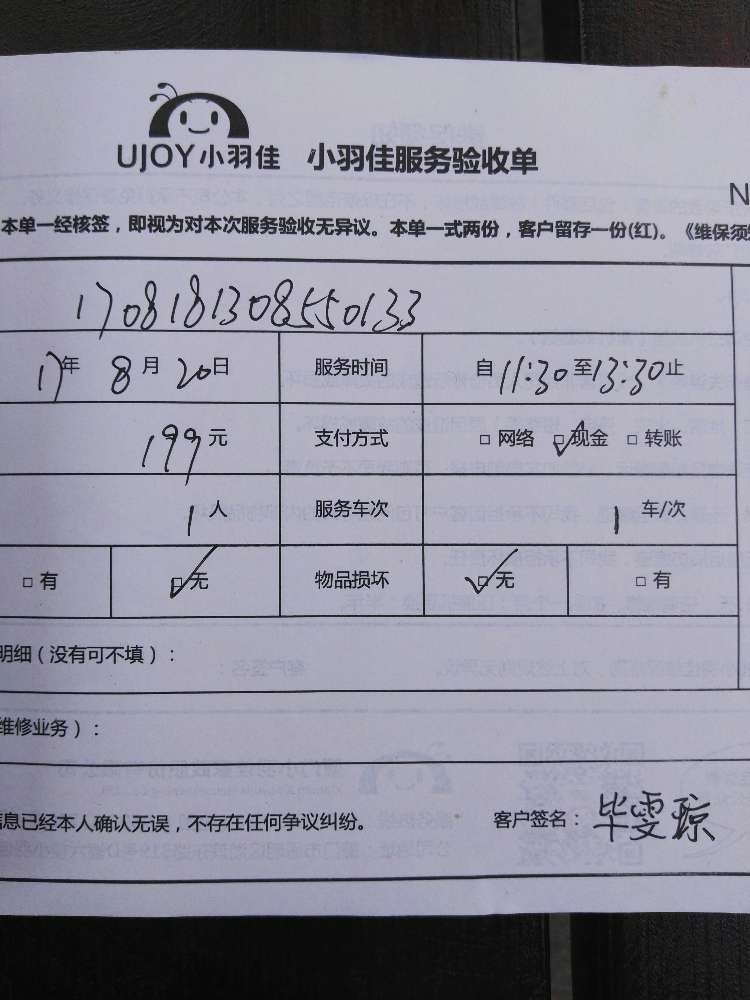 UJOY小羽佳 小羽佳服务验收单
N
本单一经核签，即视为对本次服务验收无异议。本单一式两份，客户留存一份(红)。《维保须知
1708181308550133
17年 8月 20日 服务时间 自11:30至13:30止
199元 支付方式 □ 网络 □现金 □ 转账
1人 服务车次 1 车/次
□ 有 □无 物品损坏 □无 □ 有
明细（没有可不填）：
维修业务）：
信息已经本人确认无误，不存在任何争议纠纷。 客户签名：毕雯琼